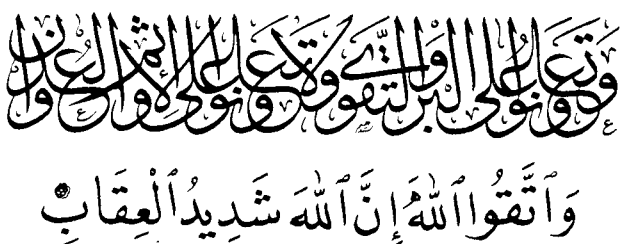 وَتَعَاوَنُوا عَلَى الْبِرِّ وَالتَّقْوَىٰ وَلَا تَعَاوَنُوا عَلَى الْإِثْمِ وَالْعُدْوَانِ
وَٱتَّقُوا ٱللَّهَ إِنَّ ٱللَّهَ شَدِيدُ ٱلْعِقَابِ